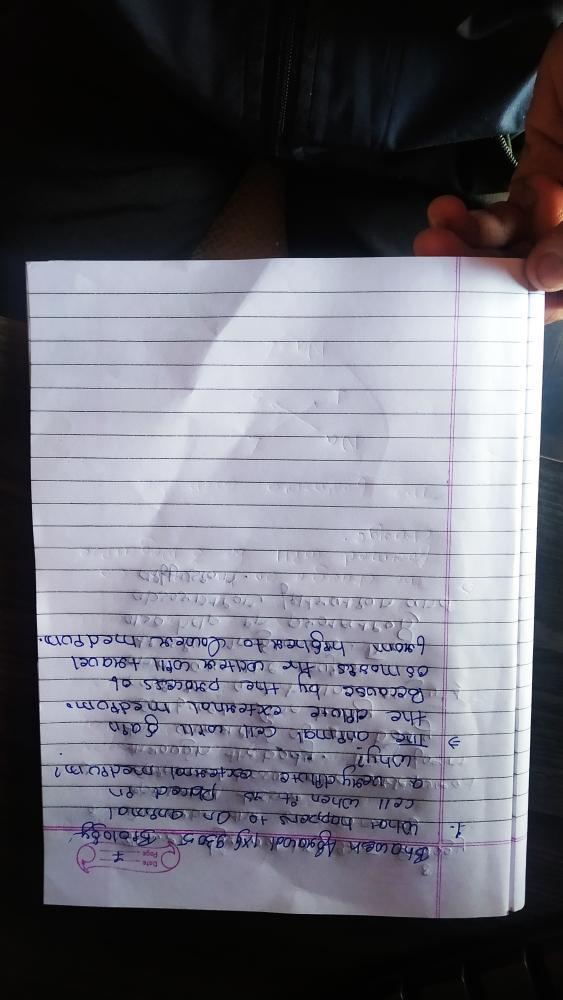 Date
Page 7
Biology
1. What happens to an animal
cell when it is placed in
a very dilute external medium?
Why?
⇒ The animal cell will gain
the dilute external medium.
Because by the process of
osmosis the water will travel
from higher to lower medium.